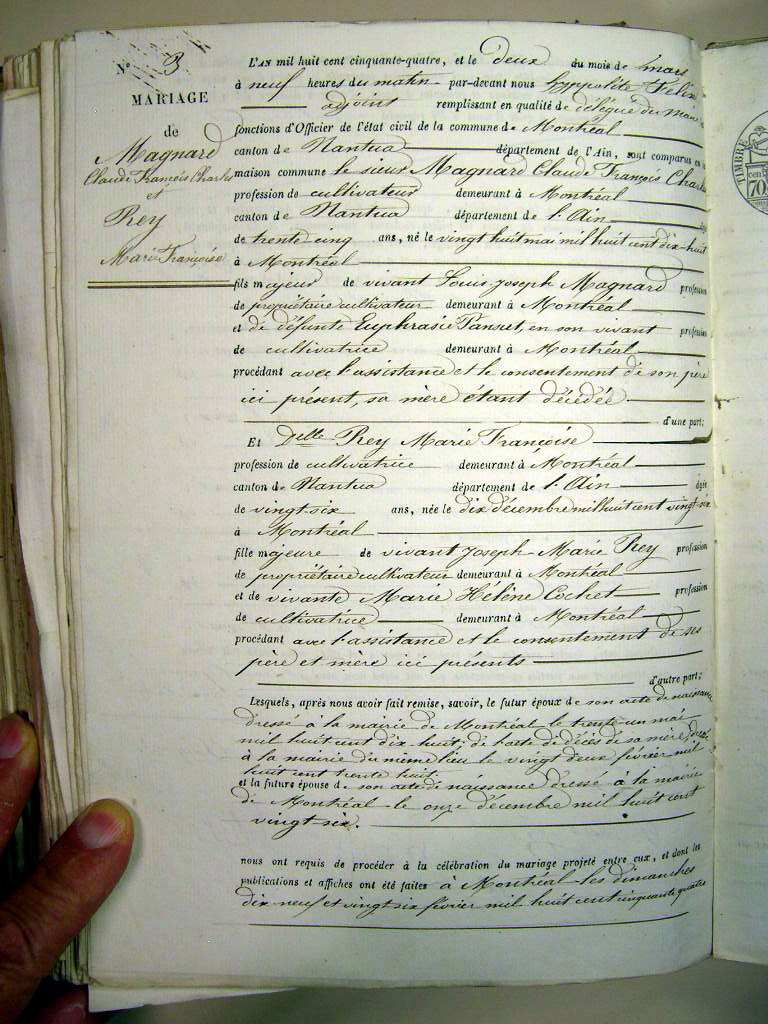 N° 3
MARIAGE
de
Magnard
Claude François Charles
et
Rey
Marie Françoise
L'AN mil huit cent cinquante-quatre, et le deux du mois de mars
à neuf heures du matin par-devant nous hyppolite
adjoint remplissant en qualité de délégué du maire
fonctions d'Officier de l'état civil de la commune de Montréal
canton de Nantua département de l'Ain, sont comparus en la
maison commune le sieur Magnard Claude François Charles
profession de cultivateur demeurant à Montréal
canton de Nantua département de l'Ain
de trente cinq ans, né le vingt huit mai mil huit cent dix-huit
à Montréal
fils majeur de vivant Louis-Joseph Magnard profession
de propriétaire cultivateur demeurant à Montréal
et de défunte Euphrasie Pansut, en son vivant profession
de cultivatrice demeurant à Montréal
procédant avec l'assistance et le consentement de son père
ici présent, sa mère étant décédée
d'une part;
Et Delle Rey Marie Françoise
profession de cultivatrice demeurant à Montréal
canton de Nantua département de l'Ain âgée
de vingt-six ans, née le dix décembre mil huit cent vingt-six
à Montréal
fille majeure de vivant Joseph-Marie Rey profession
de propriétaire cultivateur demeurant à Montréal
et de vivante Marie Hélène Cochet profession
de cultivatrice demeurant à Montréal
procédant avec l'assistance et le consentement de ses
père et mère ici présents
d'autre part;
Lesquels, après nous avoir fait remise, savoir, le futur époux de son acte de naissance
dressé à la mairie de Montréal le trente-un mai
mil huit cent dix huit; de l'acte de décès de sa mère, dressé
à la mairie du même lieu le vingt deux février mil
huit cent trente huit.
et la future épouse de son acte de naissance dressé à la mairie
de Montréal le onze décembre mil huit cent
vingt-six.
nous ont requis de procéder à la célébration du mariage projeté entre eux, et dont les
publications et affiches ont été faites à Montréal les dimanches
dix neuf et vingt six février mil huit cent cinquante quatre
TIMBRE
70